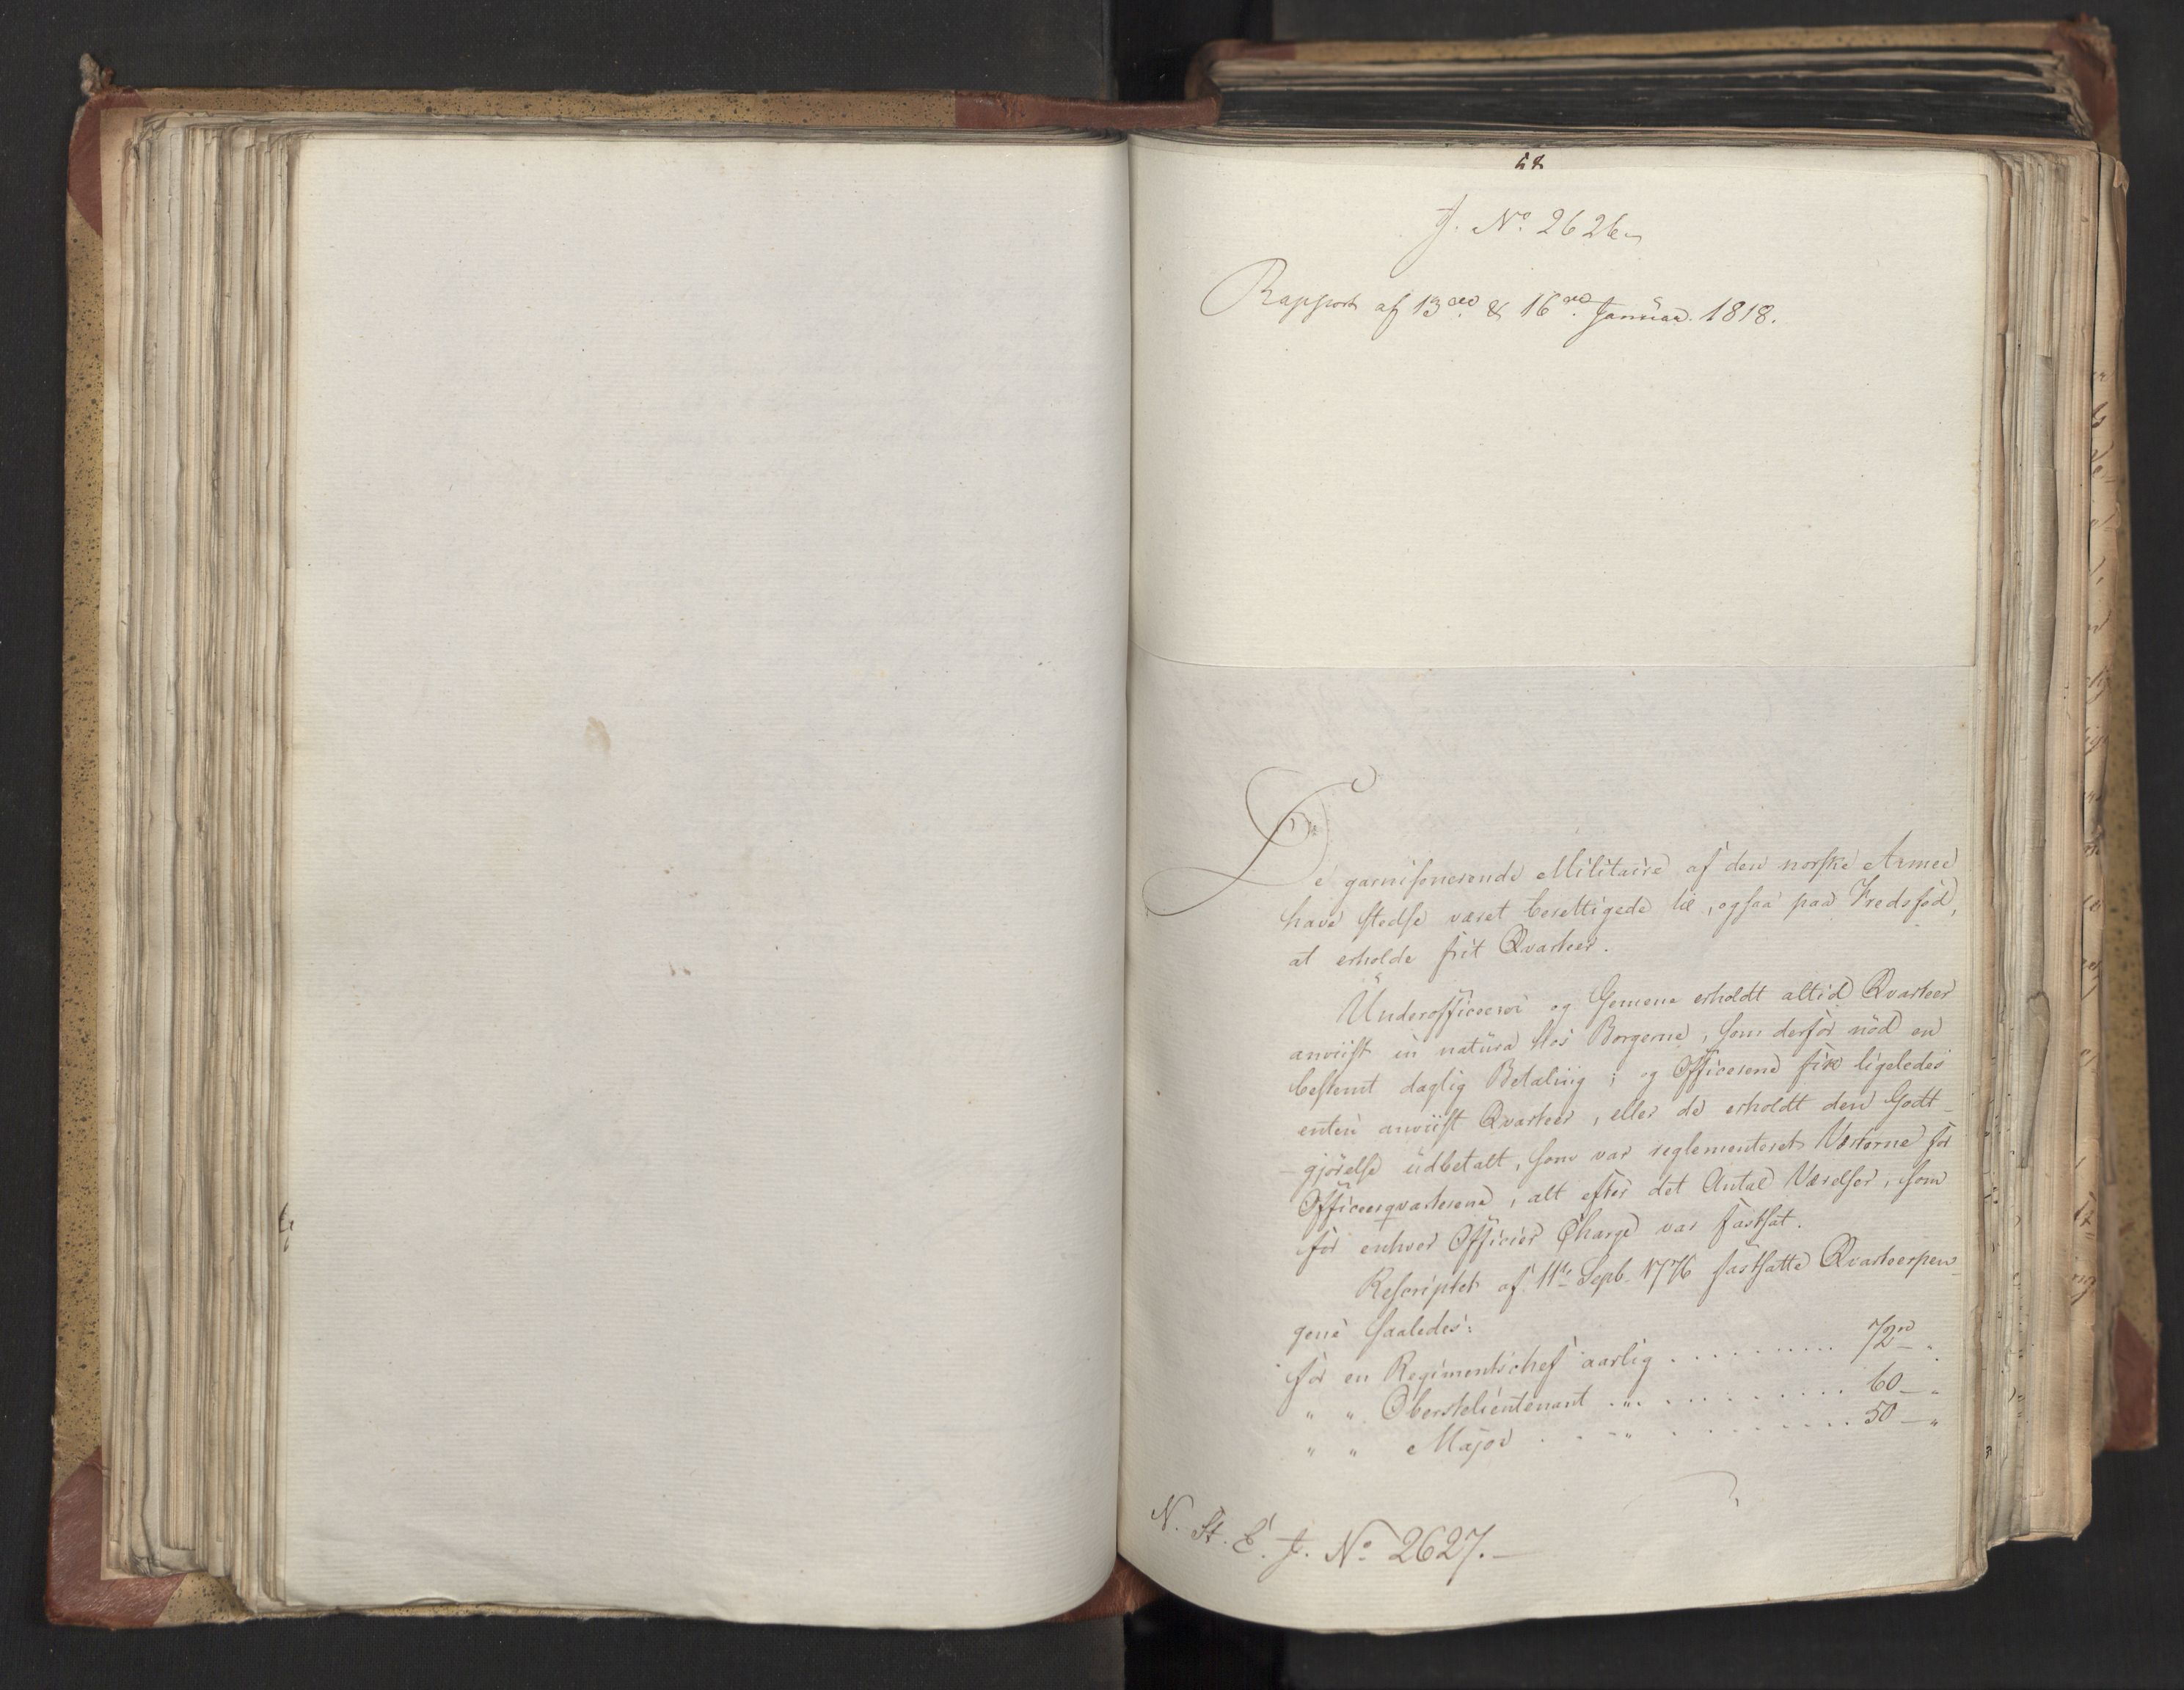 58
J. No. 2626
Rapport af 13de & 16de Januar 1818.
De garnisonerende Militaire af den norske Armee
have stedse været berettigede til, ogsaa paa Fredsfod,
at erholde frit Qvarteer.
Underofficerer og Gemene erholdt altid Qvarteer
anviist in natura hos Borgerne, som derfor nød en
bestemt daglig Betaling; og Officerene fik ligeledes
enten anviist Qvarteer, eller de erholdt den Godt-
-gjørelse udbetalt, som var reglementeret Værterne for
Officeerqvarterene, alt efter det Antal Værelser, som
for enhver Officier Charge var fastsat.
Rescriptet af 11te Septb. 1776 fastsatte Qvarteerpen-
gene saaledes:
for en Regimentschef aarlig . . . . . . . . . . 72rd „
„ „ Oberstelieutenant . „ . . . . . . . . . . . 60 — „
„ „ Major . . - „ . . . . . . . . 50 — „
N. St. E. J. No. 2627. —